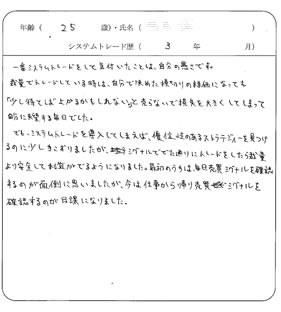 年齢( 25 歳)・氏名( )
システムトレード歴( 3 年 月)
一番システムトレードをして気付いたことは、自分の悪さです。
裁量でトレードしている時は、自分で決めた損切りの株価になっても
「少し待てば上がるかもしれない」と売らないで損失を大きくしてしまって
る毎日でした。
でもシステムトレードを導入してしまえば、優位性のあるストラテジーを見つけ
るのに少し ましたが、シグナルでた通りにトレードをしたら裁量
より安定して利益がでるようになりました。最初のうちは、毎日売買シグナルを確認
するのが面倒に思いましたが、今は仕事から帰り売買シグナルを
確認するのが日課になりました。